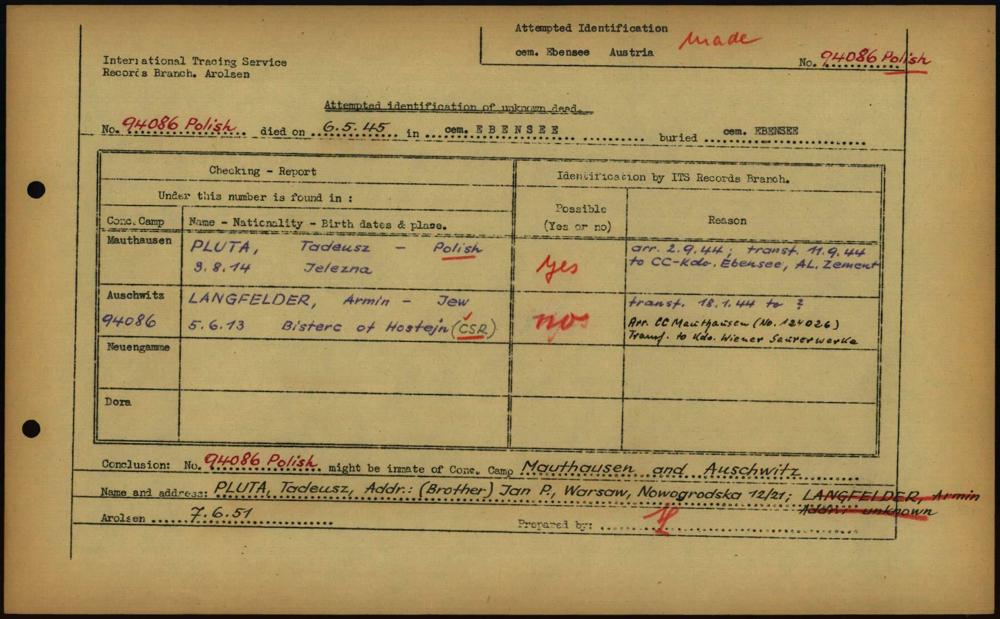 Attempted Identification
cem. Ebensee Austria made
No. 94086 Polish
International Tracing Service
Records Branch. Arolsen
Attempted identification of unknown dead.
No. 94086 Polish died on 6.5.45 in cem. EBENSEE buried cem. EBENSEE
Checking - Report
Identification by ITS Records Branch.
Under this number is found in :
Possible
(Yes or no)
Reason
Conc. Camp
Name - Nationality - Birth dates & place.
Mauthausen
PLUTA, Tadeusz - Polish
9.8.14 Jelezna
yes
arr. 2.9.44; transf. 11.9.44
to CC-Kdo. Ebensee, AL. Zement
Auschwitz
94086
LANGFELDER, Armin - Jew
5.6.13 Bisterc of Hostejn (CSR)
no
transf. 18.1.44 to ?
Arr. CC Mauthausen (No. 124026)
Transf. to Kdo. Wiener Saurerwerke
Neuengamme
Dora
Conclusion: No. 94086 Polish might be inmate of Conc. Camp Mauthausen and Auschwitz
Name and address: PLUTA, Tadeusz, Addr.: (Brother) Jan P., Warsaw, Nowogrodska 12/21; LANGFELDER, Armin
Addr.: unknown
Arolsen 7.6.51
Prepared by: